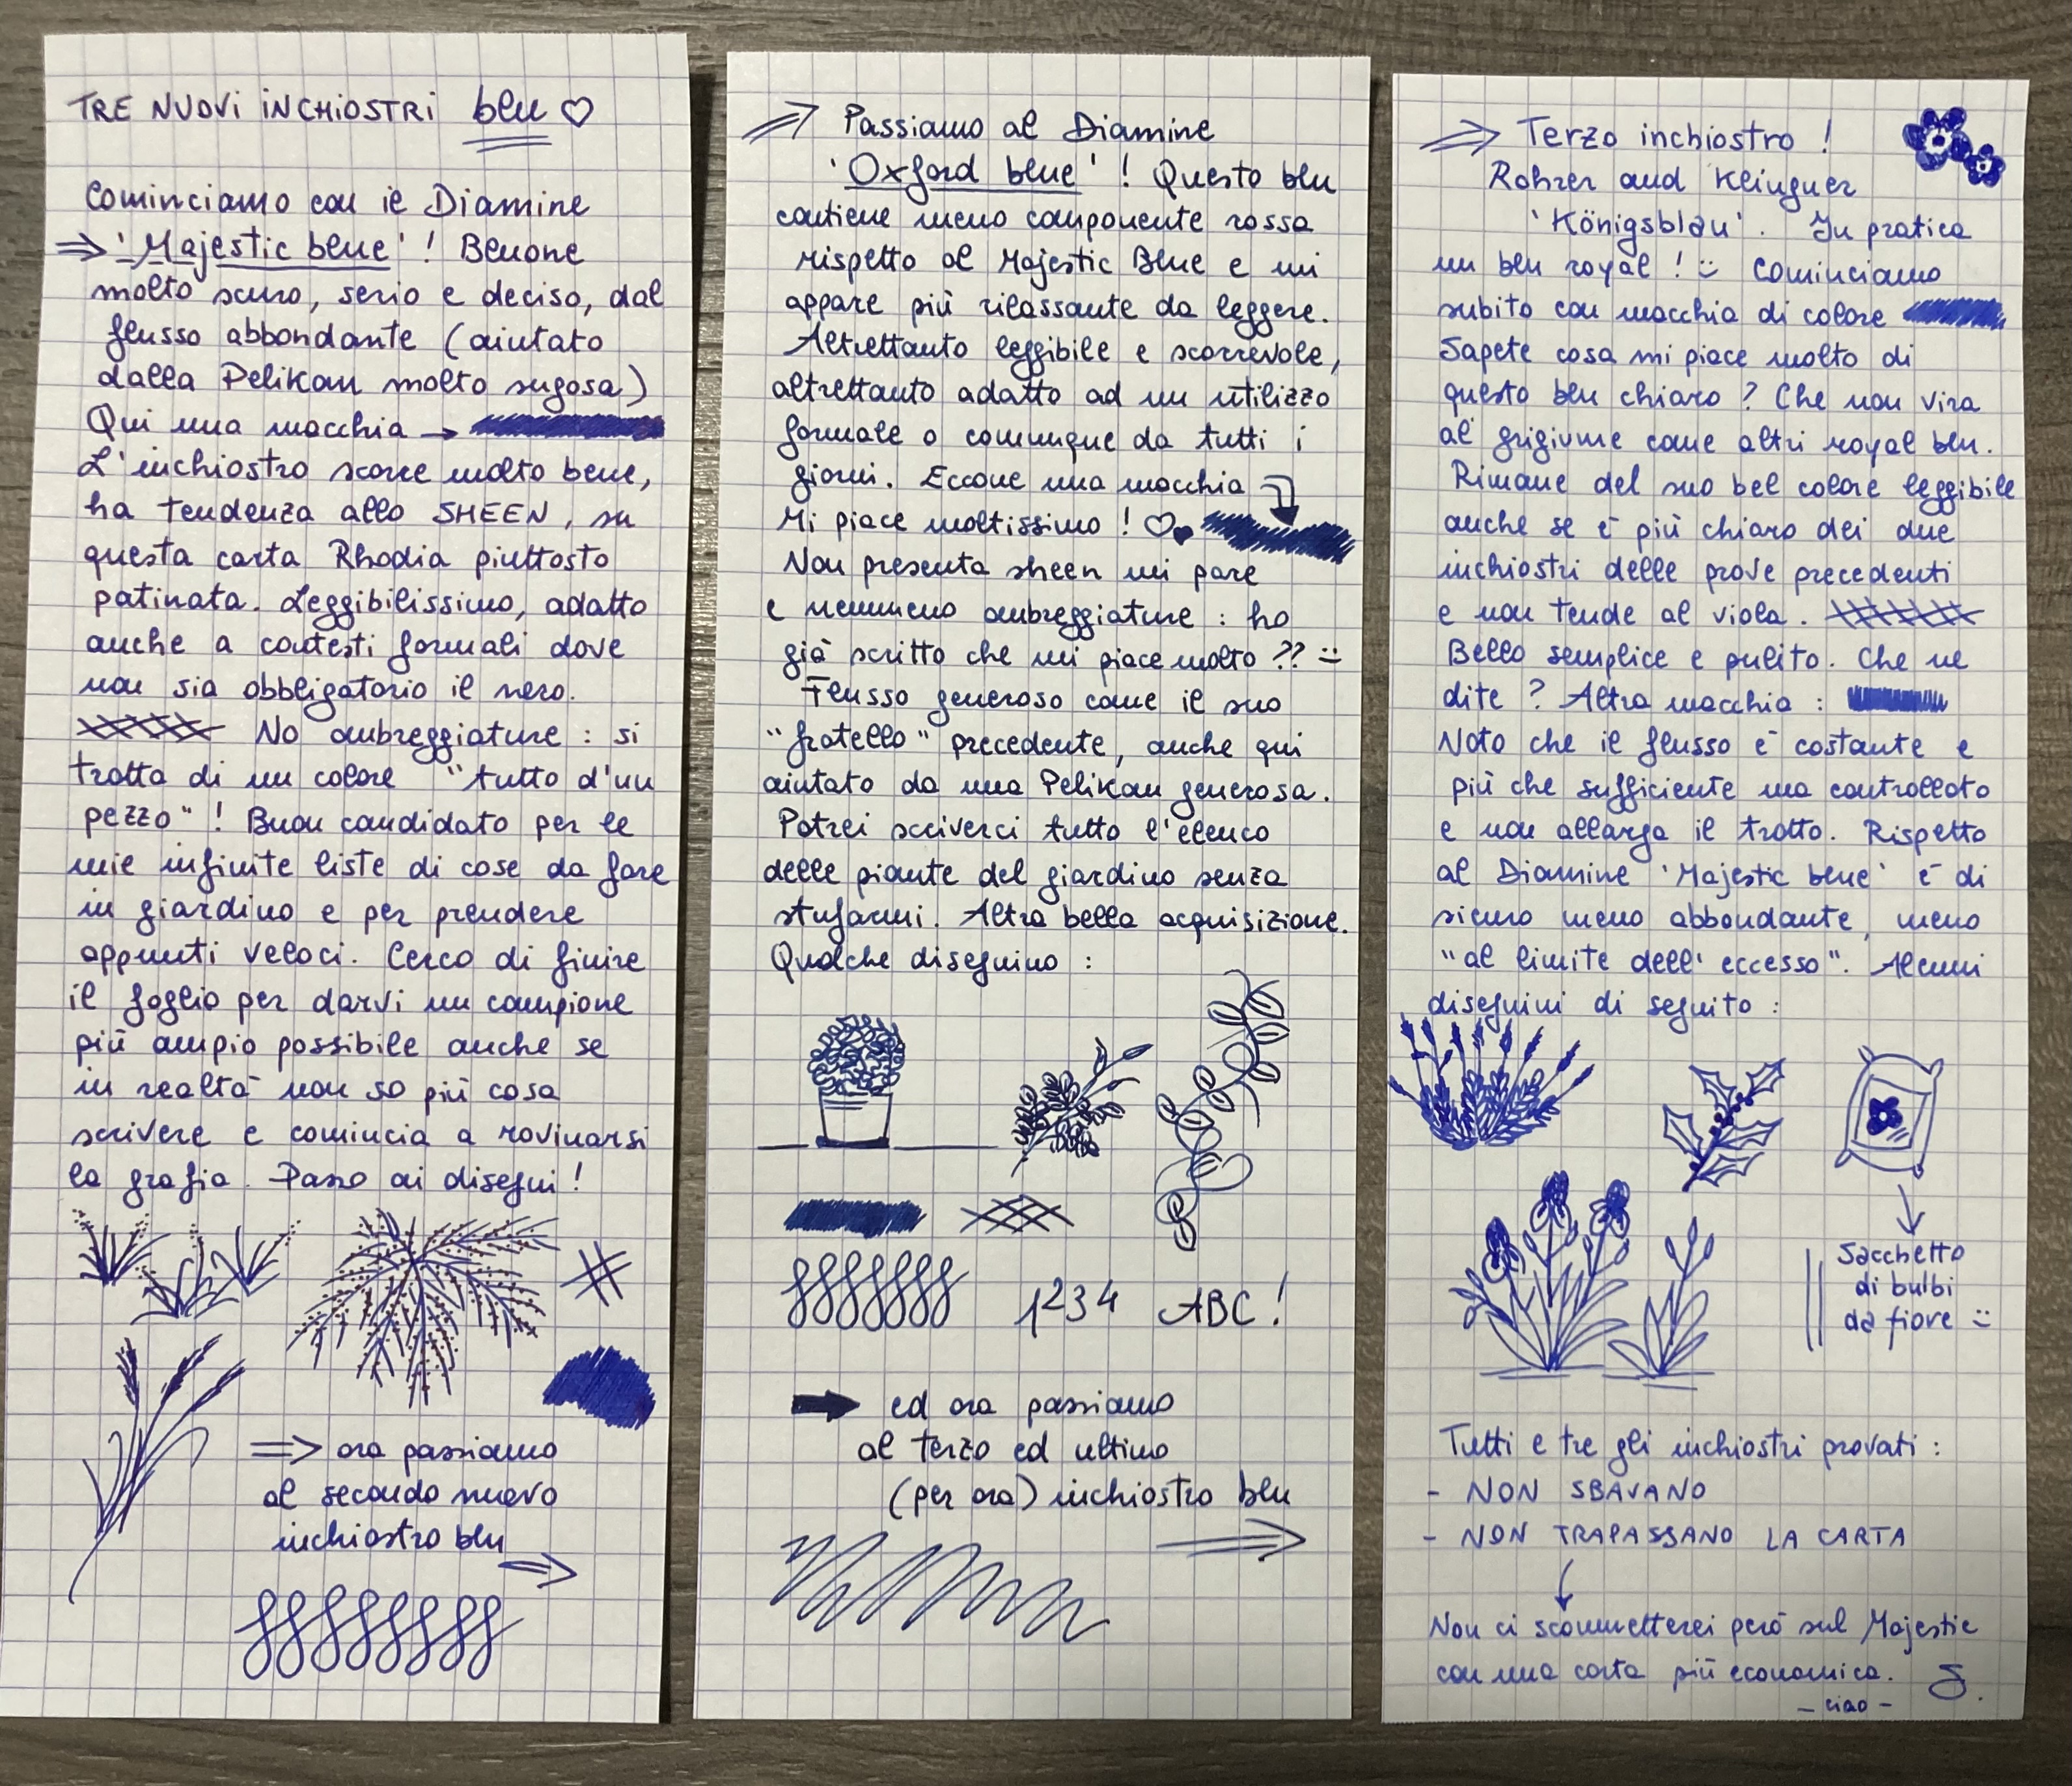 TRE NUOVI INCHIOSTRI blu ♡
Cominciamo con il Diamine
⇒ 'Majestic blue' ! Bluone
molto scuro, serio e deciso, dal
flusso abbondante (aiutato
dalla Pelikan molto sugosa)
Qui una macchia →
L'inchiostro scorre molto bene,
ha tendenza allo SHEEN, su
questa carta Rhodia piuttosto
patinata. Leggibilissimo, adatto
anche a contesti formali dove
non sia obbligatorio il nero.
No ombreggiature : si
tratta di un colore "tutto d'un
pezzo" ! Buon candidato per le
mie infinite liste di cose da fare
in giardino e per prendere
appunti veloci. Cerco di finire
il foglio per darvi un campione
più ampio possibile anche se
in realtà non so più cosa
scrivere e comincia a rovinarsi
la grafia. Passo ai disegni !
⇒ ora passiamo
al secondo nuovo
inchiostro blu
⇒
⇒ Passiamo al Diamine
'Oxford blue' ! Questo blu
contiene meno componente rossa
rispetto al Majestic Blue e mi
appare più rilassante da leggere.
Altrettanto leggibile e scorrevole,
altrettanto adatto ad un utilizzo
formale o comunque da tutti i
giorni. Eccone una macchia
Mi piace moltissimo ! ♡♥
Non presenta sheen mi pare
e nemmeno ombreggiature : ho
già scritto che mi piace molto ?? :)
Flusso generoso come il suo
"fratello" precedente, anche qui
aiutato da una Pelikan generosa.
Potrei scriverci tutto l'elenco
delle piante del giardino senza
stufarmi. Altra bella acquisizione.
Qualche disegnino :
1234 ABC !
➡ ed ora passiamo
al terzo ed ultimo
(per ora) inchiostro blu
⇒
⇒ Terzo inchiostro !
Rohrer and Klinguer
'Königsblau'. In pratica
un blu royal ! :) Cominciamo
subito con macchia di colore
Sapete cosa mi piace molto di
questo blu chiaro ? Che non vira
al grigiume come altri royal blu.
Rimane del suo bel colore leggibile
anche se è più chiaro dei due
inchiostri delle prove precedenti
e non tende al viola.
Bello semplice e pulito. Che ne
dite ? Altra macchia :
Noto che il flusso è costante e
più che sufficiente ma controllato
e non allarga il tratto. Rispetto
al Diamine 'Majestic blue' è di
sicuro meno abbondante, meno
"al limite dell' eccesso". Alcuni
disegnini di seguito :
Sacchetto
di bulbi
da fiore :)
Tutti e tre gli inchiostri provati :
- NON SBAVANO
- NON TRAPASSANO LA CARTA
Non ci scommetterei però sul Majestic
con una carta più economica. S.
- ciao -